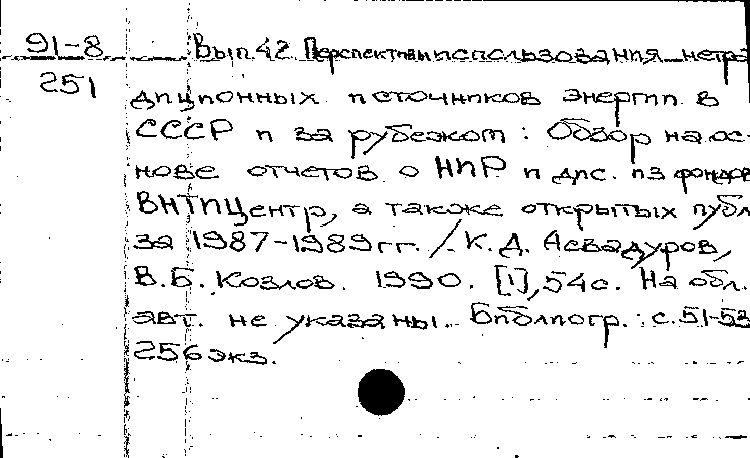 91-8 Вып. 42 Перспективы использования нетра
251 диционных источников энергии в
СССР и за рубежом : Обзор на ос-
нове отчетов о НИР и дис. из фондов
ВНТИЦентр, а также открытых публ.
за 1987-1989 гг. / К. Д. Асвадуров,
В. Б. Козлов. 1990. [1], 54 с. На обл.
авт. не указаны. Библиогр.: с. 51-53
256 экз.